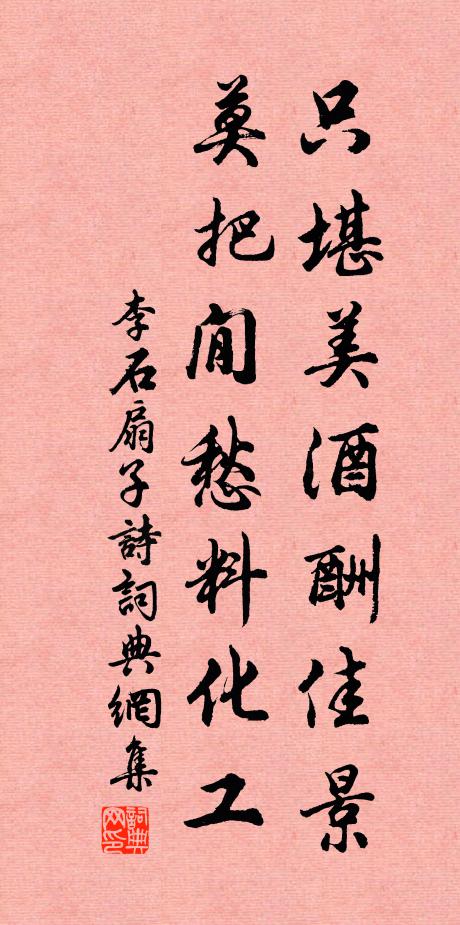 只堪美酒酬佳景
莫把閒愁料化工
李石扇子詩詞典網集
詞典网印